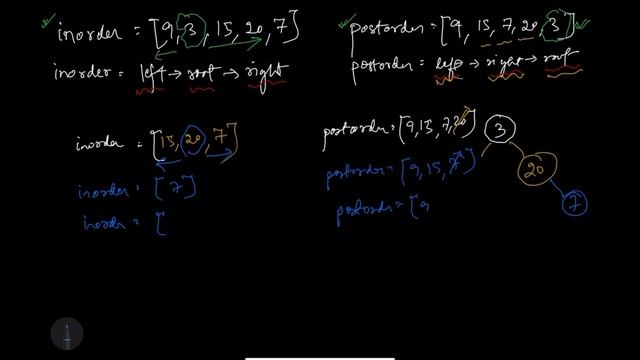 inorder = [9, 3, 15, 20, 7]
postorder = [9, 15, 7, 20, 3]
inorder = left → root → right
postorder = left → right → root
inorder = [15, 20, 7]
postorder = [9, 15, 7, 20]
3
inorder = [7]
postorder = [9, 15, 7]
20
inorder = [
postorder = [9
7